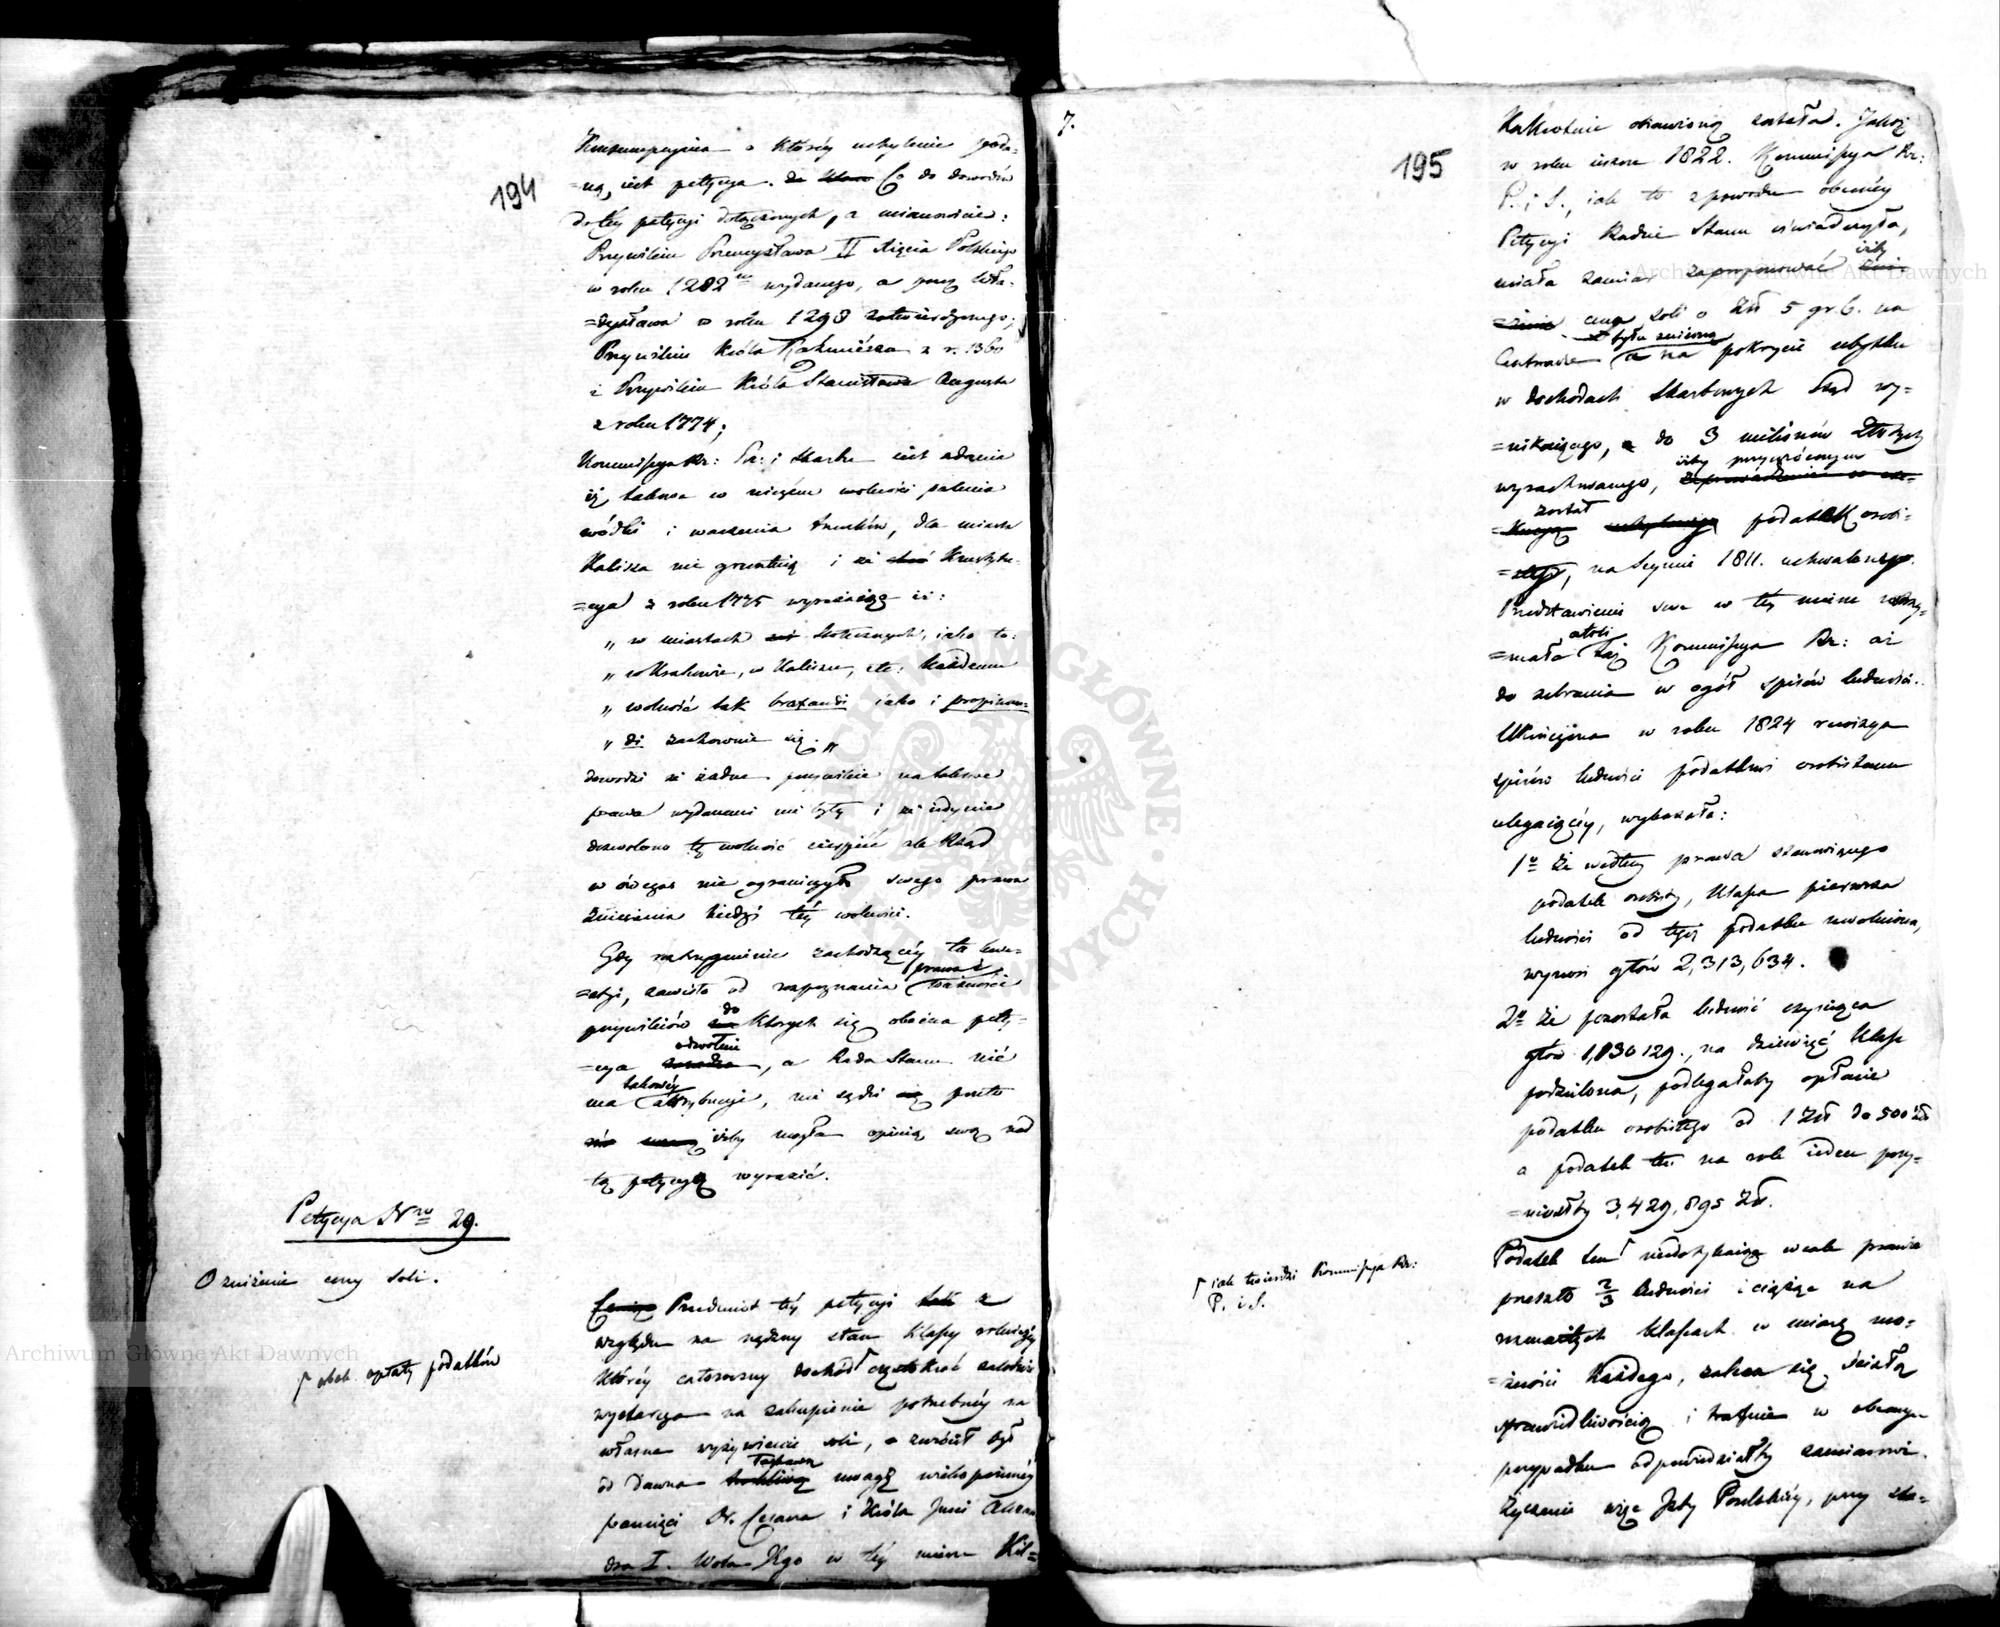 194
Konsumpcyjna o któréy uchylenie poda=
=ną iest petycya. Co do dowodów
do téy petycyi dołączonych, a mianowicie:
Przywileiu Przemysława II Xięcia Polskiego
w roku 1282 wydanego, a przez Wła=
=dysława w roku 1298 zatwierdzonego;
Przywileiu Króla Kaźmiérza z r. 1360
i Przywileiu Króla Stanisława Augusta
z roku 1774;
Kommissya Rz: Prz: i Skarbu iest zdania
iż takowe w niczém wolności palenia
wódki i warzenia trunków, dla miasta
Kalisza nie gruntuią i że Konstytu=
=cya z roku 1775 wyrażaiąc iż:
„ w miastach stołecznych, iako to:
„ w Krakowie, w Kaliszu, etc: każdemu
„ wolność tak braxandi iako i propinan=
„ di zachowuie się. „
dowodzi że żadne przywileie na takowe
prawa wydanemi nie były i że iedynie
dozwolono tę wolność cierpieć ale Rząd
w ówczas nie ograniczył swego prawa
zniesienia kiedyś téy wolności.
Gdy roztrzygnienie zachodzącéy tu kwe=
=styi, zawisło od rozpoznania prawnéj ważności
przywileiów do których się obecna pety=
=cya odwołuie, a Rada Stanu nié
ma takowéy attrybucyi, nie sądzi przeto
iżby mogła opinią swą nad
tą petycyą wyrazić.
Petycya Nro 29.
O zniżenie ceny soli.
Przedmiot téy petycyi z
względu na nędzny stan klassy rolniczéy
któréy całoroczny dochód częstokroć zaledwie
wystarcza na zakupienie potrzebnéy na
własne wyżywienie soli, zwrócił był
od dawna łaskawą uwagę wiekopomnéy
pamięci Nr. Cesarza i Króla Jmci Alexan
dra I. Wola Jego w téy mierze Kil=
⌈ obok opłaty podatków
7.
195
Kakrotnie obiawioną została. Jakoż
w roku ieszcze 1822. Kommissya Rz:
P. i S., iak to z powodu obecnéy
Petycyi Radzie Stanu oświadczyła,
miała zamiar zaproponować iżby
cena soli o Złt 5 gr. 6. na
Centnarze była zniżoną na pokrycie ubytku
w dochodach Skarbowych ztąd wy=
=nikaiącego, do 3 milionów Złotych
wyrachowanego, iżby przywróconym
został podatek osobi=
=sty, na Seymie 1811. uchwalony.
Przedstawienie swe w téy mierze wstrzy=
=mała atoli Kommissya Rz: aż
do zebrania w ogół spisów ludności.
Ukończona w roku 1824 rewizya
spisów ludności podatkowi osobistemu
ulegaiącéy, wykazała:
1o że według prawa stanowiącego
podatek osobisty, klassa pierwsza
ludności od tegoż podatku uwolniona,
wynosi głów 2,313,634.
2o że pozostała ludność czyniąca
głów 1,830129., na dziewięć klass
podzielona, podlegałaby opłacie
podatku osobistego od 1 Złt do 500 Zł
a podatek ten na rok ieden przy=
=niósłby 3,429,895 Zł.
Podatek ten ⌈ niedotykaiąc wcale prawie
przeszło 2/3 ludności i ciążąc na
rozmaitych klassach w miarę mo=
=żności każdego, zaleca się ścisłą
sprawiedliwością i trafnie w obecnym
przypadku odpowiedziałby zamiarowi.
Życzenie więc Jzby Poselskiéy, przy sta=
⌈ iak twierdzi Kommissya Rz:
P. i S.
Archiwum Główne Akt Dawnych
Archiwum Główne Akt Dawnych
ARCHIWUM GŁÓWNE AKT DAWNYCH